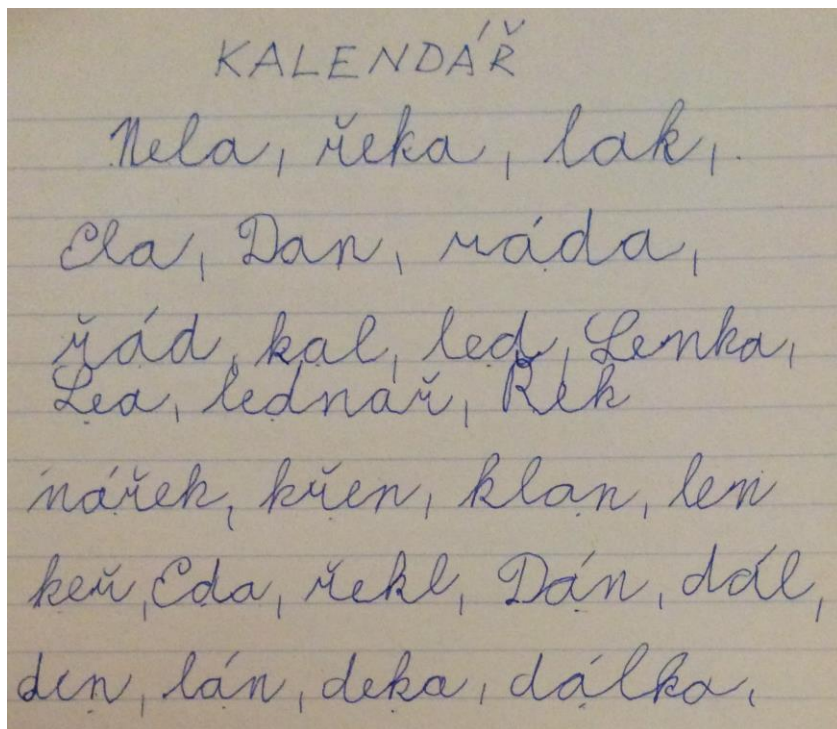 KALENDÁŘ
Nela, řeka, lak,
Ela, Dan, ráda,
řád, kal, led, Lenka,
Lea, lednář, Řek
nářek, křen, klan, len
keř, Eda, řekl, Dán, dál,
den, lán, deka, dálka,